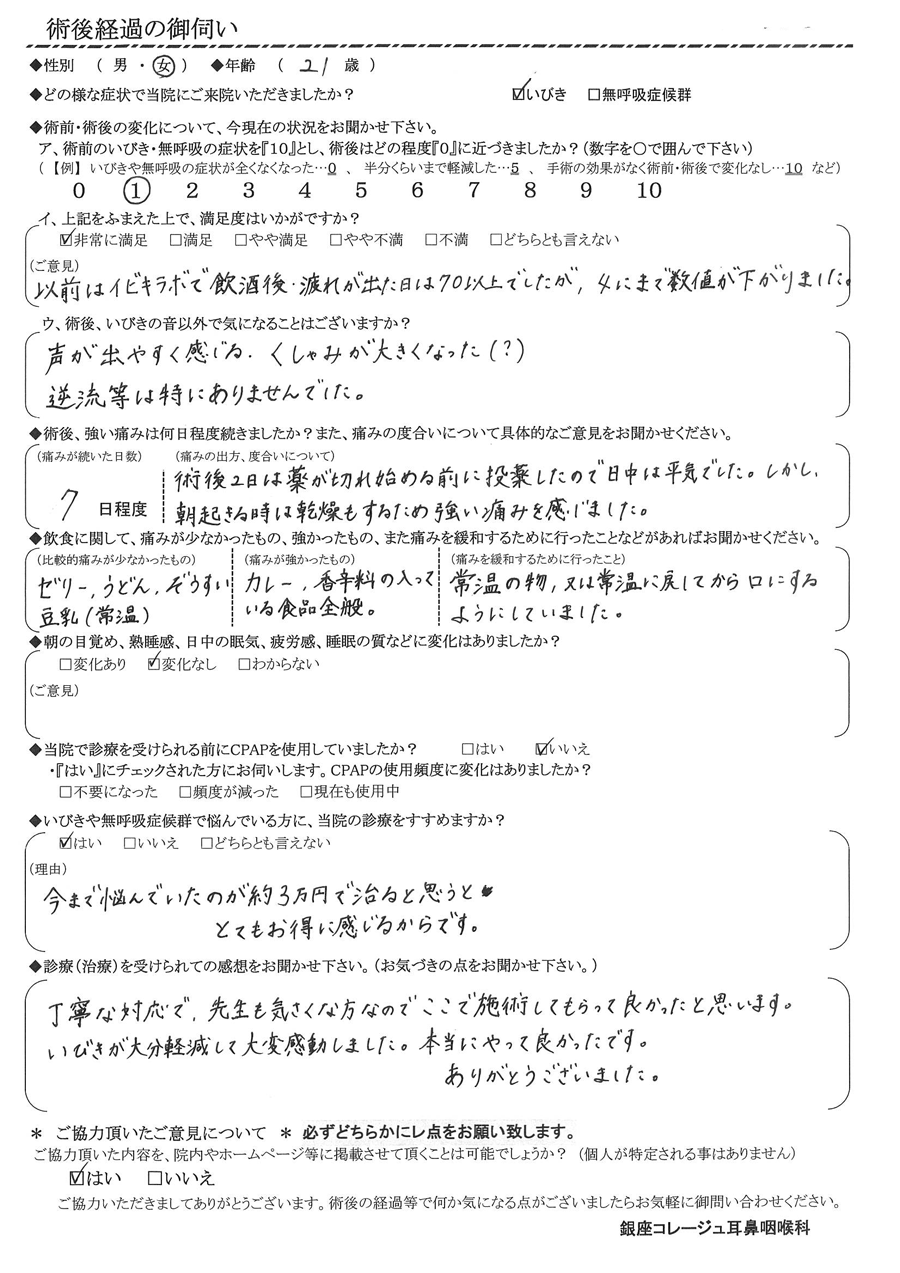 術後経過の御伺い
◆性別 ( 男 ・ 女 ) ◆年齢 ( 21 歳 )
◆どの様な症状で当院にご来院いただきましたか? ☑いびき □無呼吸症候群
◆術前・術後の変化について、今現在の状況をお聞かせ下さい。
ア、術前のいびき・無呼吸の症状を『10』とし、術後はどの程度『0』に近づきましたか?(数字を○で囲んで下さい)
(【例】いびきや無呼吸の症状が全くなくなった…0 、 半分くらいまで軽減した…5 、 手術の効果がなく術前・術後で変化なし…10 など)
0 1 2 3 4 5 6 7 8 9 10
イ、上記をふまえた上で、満足度はいかがですか?
☑非常に満足 □満足 □やや満足 □やや不満 □不満 □どちらとも言えない
(ご意見)
以前はイビキラボで飲酒後・疲れが出た日は70以上でしたが, 4にまで数値が下がりました。
ウ、術後、いびきの音以外で気になることはございますか?
声が出やすく感じる. くしゃみが大きくなった(?)
逆流等は特にありませんでした。
◆術後、強い痛みは何日程度続きましたか?また、痛みの度合いについて具体的なご意見をお聞かせください。
(痛みが続いた日数) (痛みの出方、度合いについて)
術後2日は薬が切れ始める前に投薬したので日中は平気でした。しかし,
7 日程度 朝起きる時は乾燥もするため強い痛みを感じました。
◆飲食に関して、痛みが少なかったもの、強かったもの、また痛みを緩和するために行ったことなどがあればお聞かせください。
(比較的痛みが少なかったもの) (痛みが強かったもの) (痛みを緩和するために行ったこと)
ゼリー, うどん, ぞうすい カレー, 香辛料の入って 常温の物, 又は常温に戻してから口にする
豆乳(常温) いる食品全般。 ようにしていました。
◆朝の目覚め、熟睡感、日中の眠気、疲労感、睡眠の質などに変化はありましたか?
□変化あり ☑変化なし □わからない
(ご意見)
◆当院で診療を受けられる前にCPAPを使用していましたか? □はい ☑いいえ
・『はい』にチェックされた方にお伺いします。CPAPの使用頻度に変化はありましたか?
□不要になった □頻度が減った □現在も使用中
◆いびきや無呼吸症候群で悩んでいる方に、当院の診療をすすめますか?
☑はい □いいえ □どちらとも言えない
(理由)
今まで悩んでいたのが約3万円で治ると思うと
とてもお得に感じるからです。
◆診療(治療)を受けられての感想をお聞かせ下さい。(お気づきの点をお聞かせ下さい。)
丁寧な対応で, 先生も気さくな方なのでここで施術してもらって良かったと思います。
いびきが大分軽減して大変感動しました。本当にやって良かったです。
ありがとうございました。
＊ ご協力頂いたご意見について ＊ 必ずどちらかにレ点をお願い致します。
ご協力頂いた内容を、院内やホームページ等に掲載させて頂くことは可能でしょうか? (個人が特定される事はありません)
☑はい □いいえ
ご協力いただきましてありがとうございます。術後の経過等で何か気になる点がございましたらお気軽に御問い合わせください。
銀座コレージュ耳鼻咽喉科